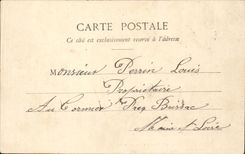 CARTE POSTALE
Ce côté est exclusivement réservé à l'adresse
Monsieur Perrin Louis
Propriétaire
Au Cormier Près Brissac
Maine et Loire